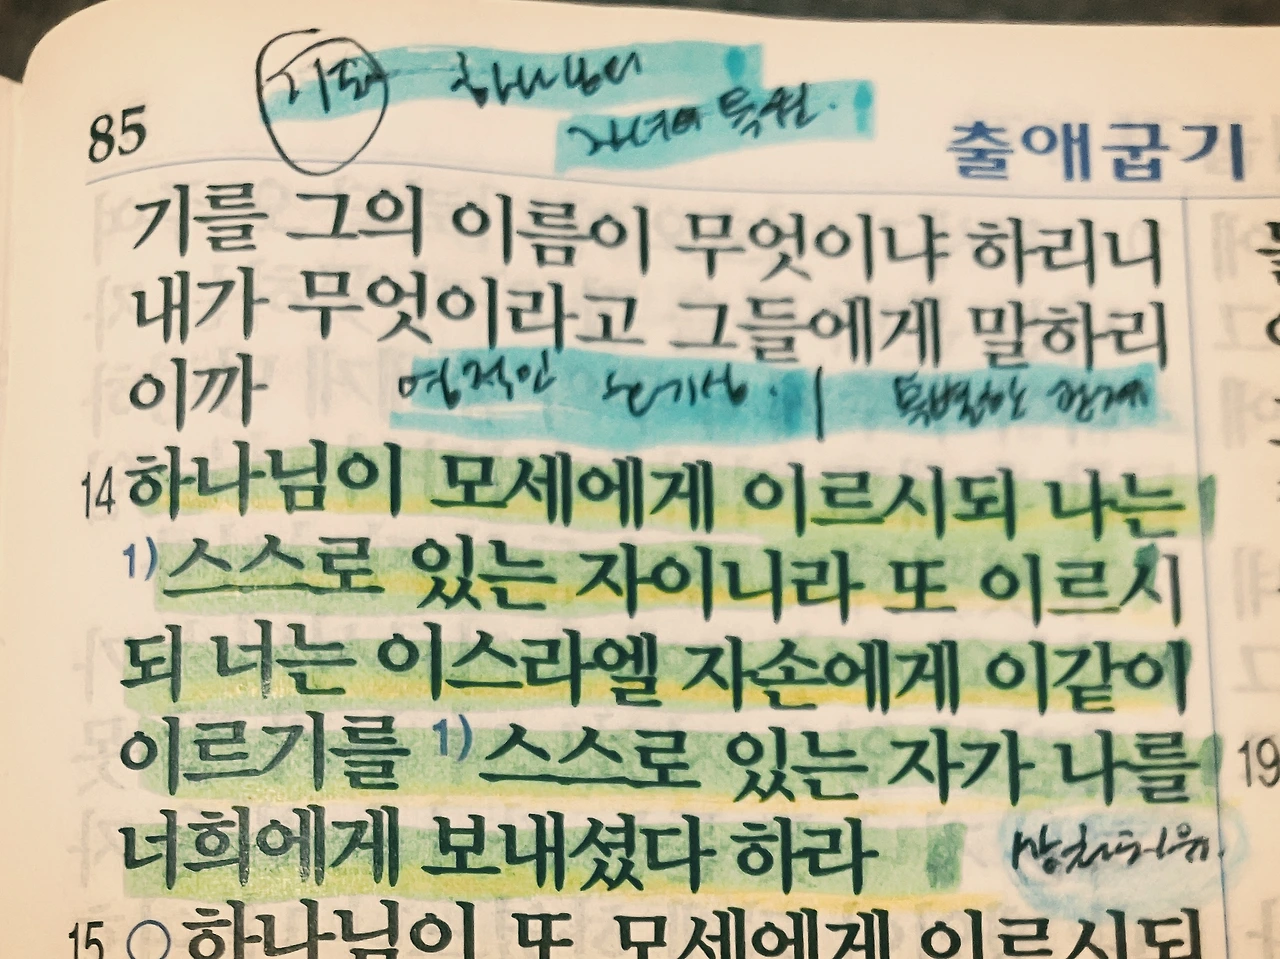 기도 하나님의
85 자녀의 특권. 출애굽기
기를 그의 이름이 무엇이냐 하리니
내가 무엇이라고 그들에게 말하리
이까 영적인 특별한 관계
14 하나님이 모세에게 이르시되 나는
1) 스스로 있는 자이니라 또 이르시
되 너는 이스라엘 자손에게 이같이
이르기를 1) 스스로 있는 자가 나를
19
너희에게 보내셨다 하라
15 ○ 하나님이 또 모세에게 이르시되